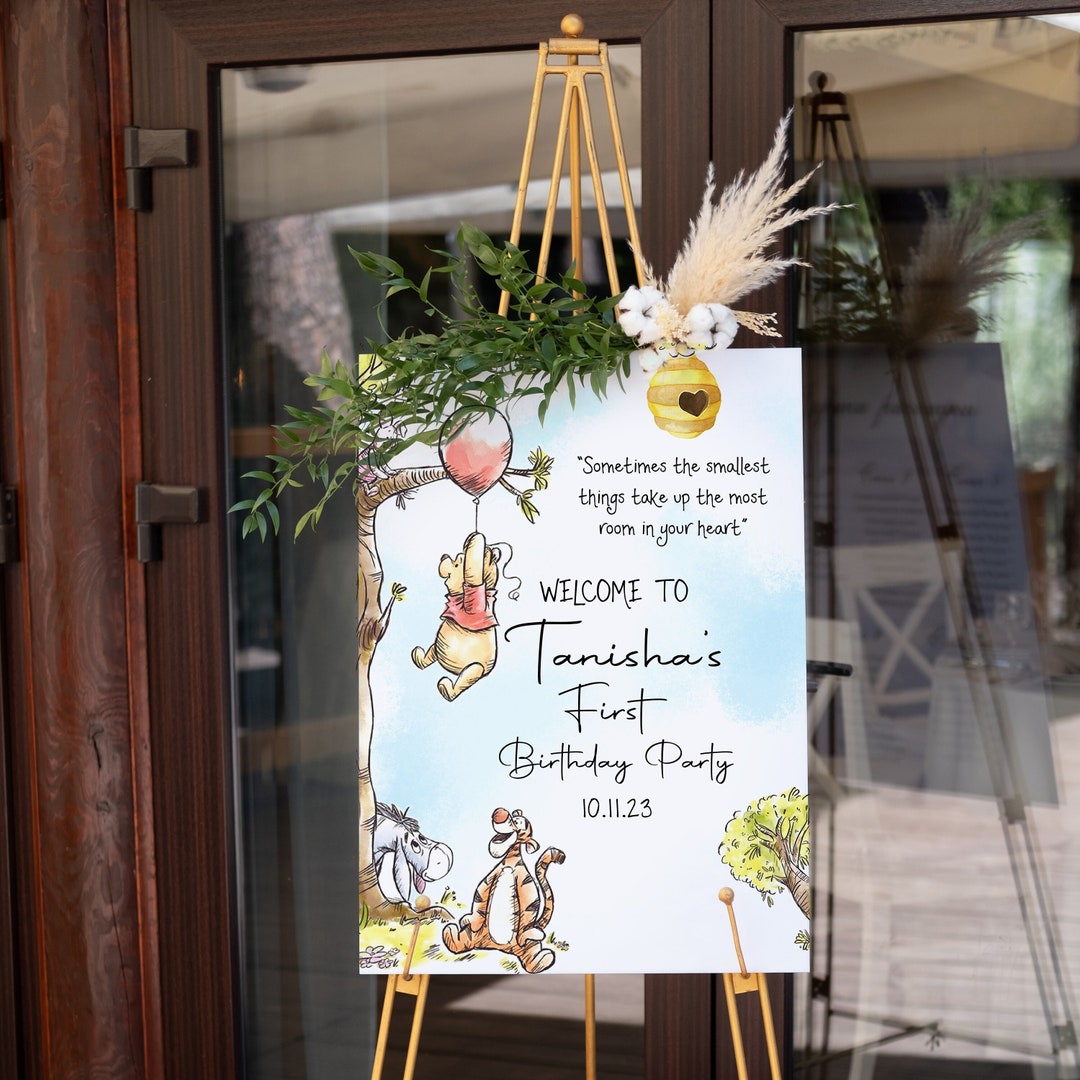 "Sometimes the smallest
things take up the most
room in your heart"
WELCOME TO
Tanisha's
First
Birthday Party
10.11.23